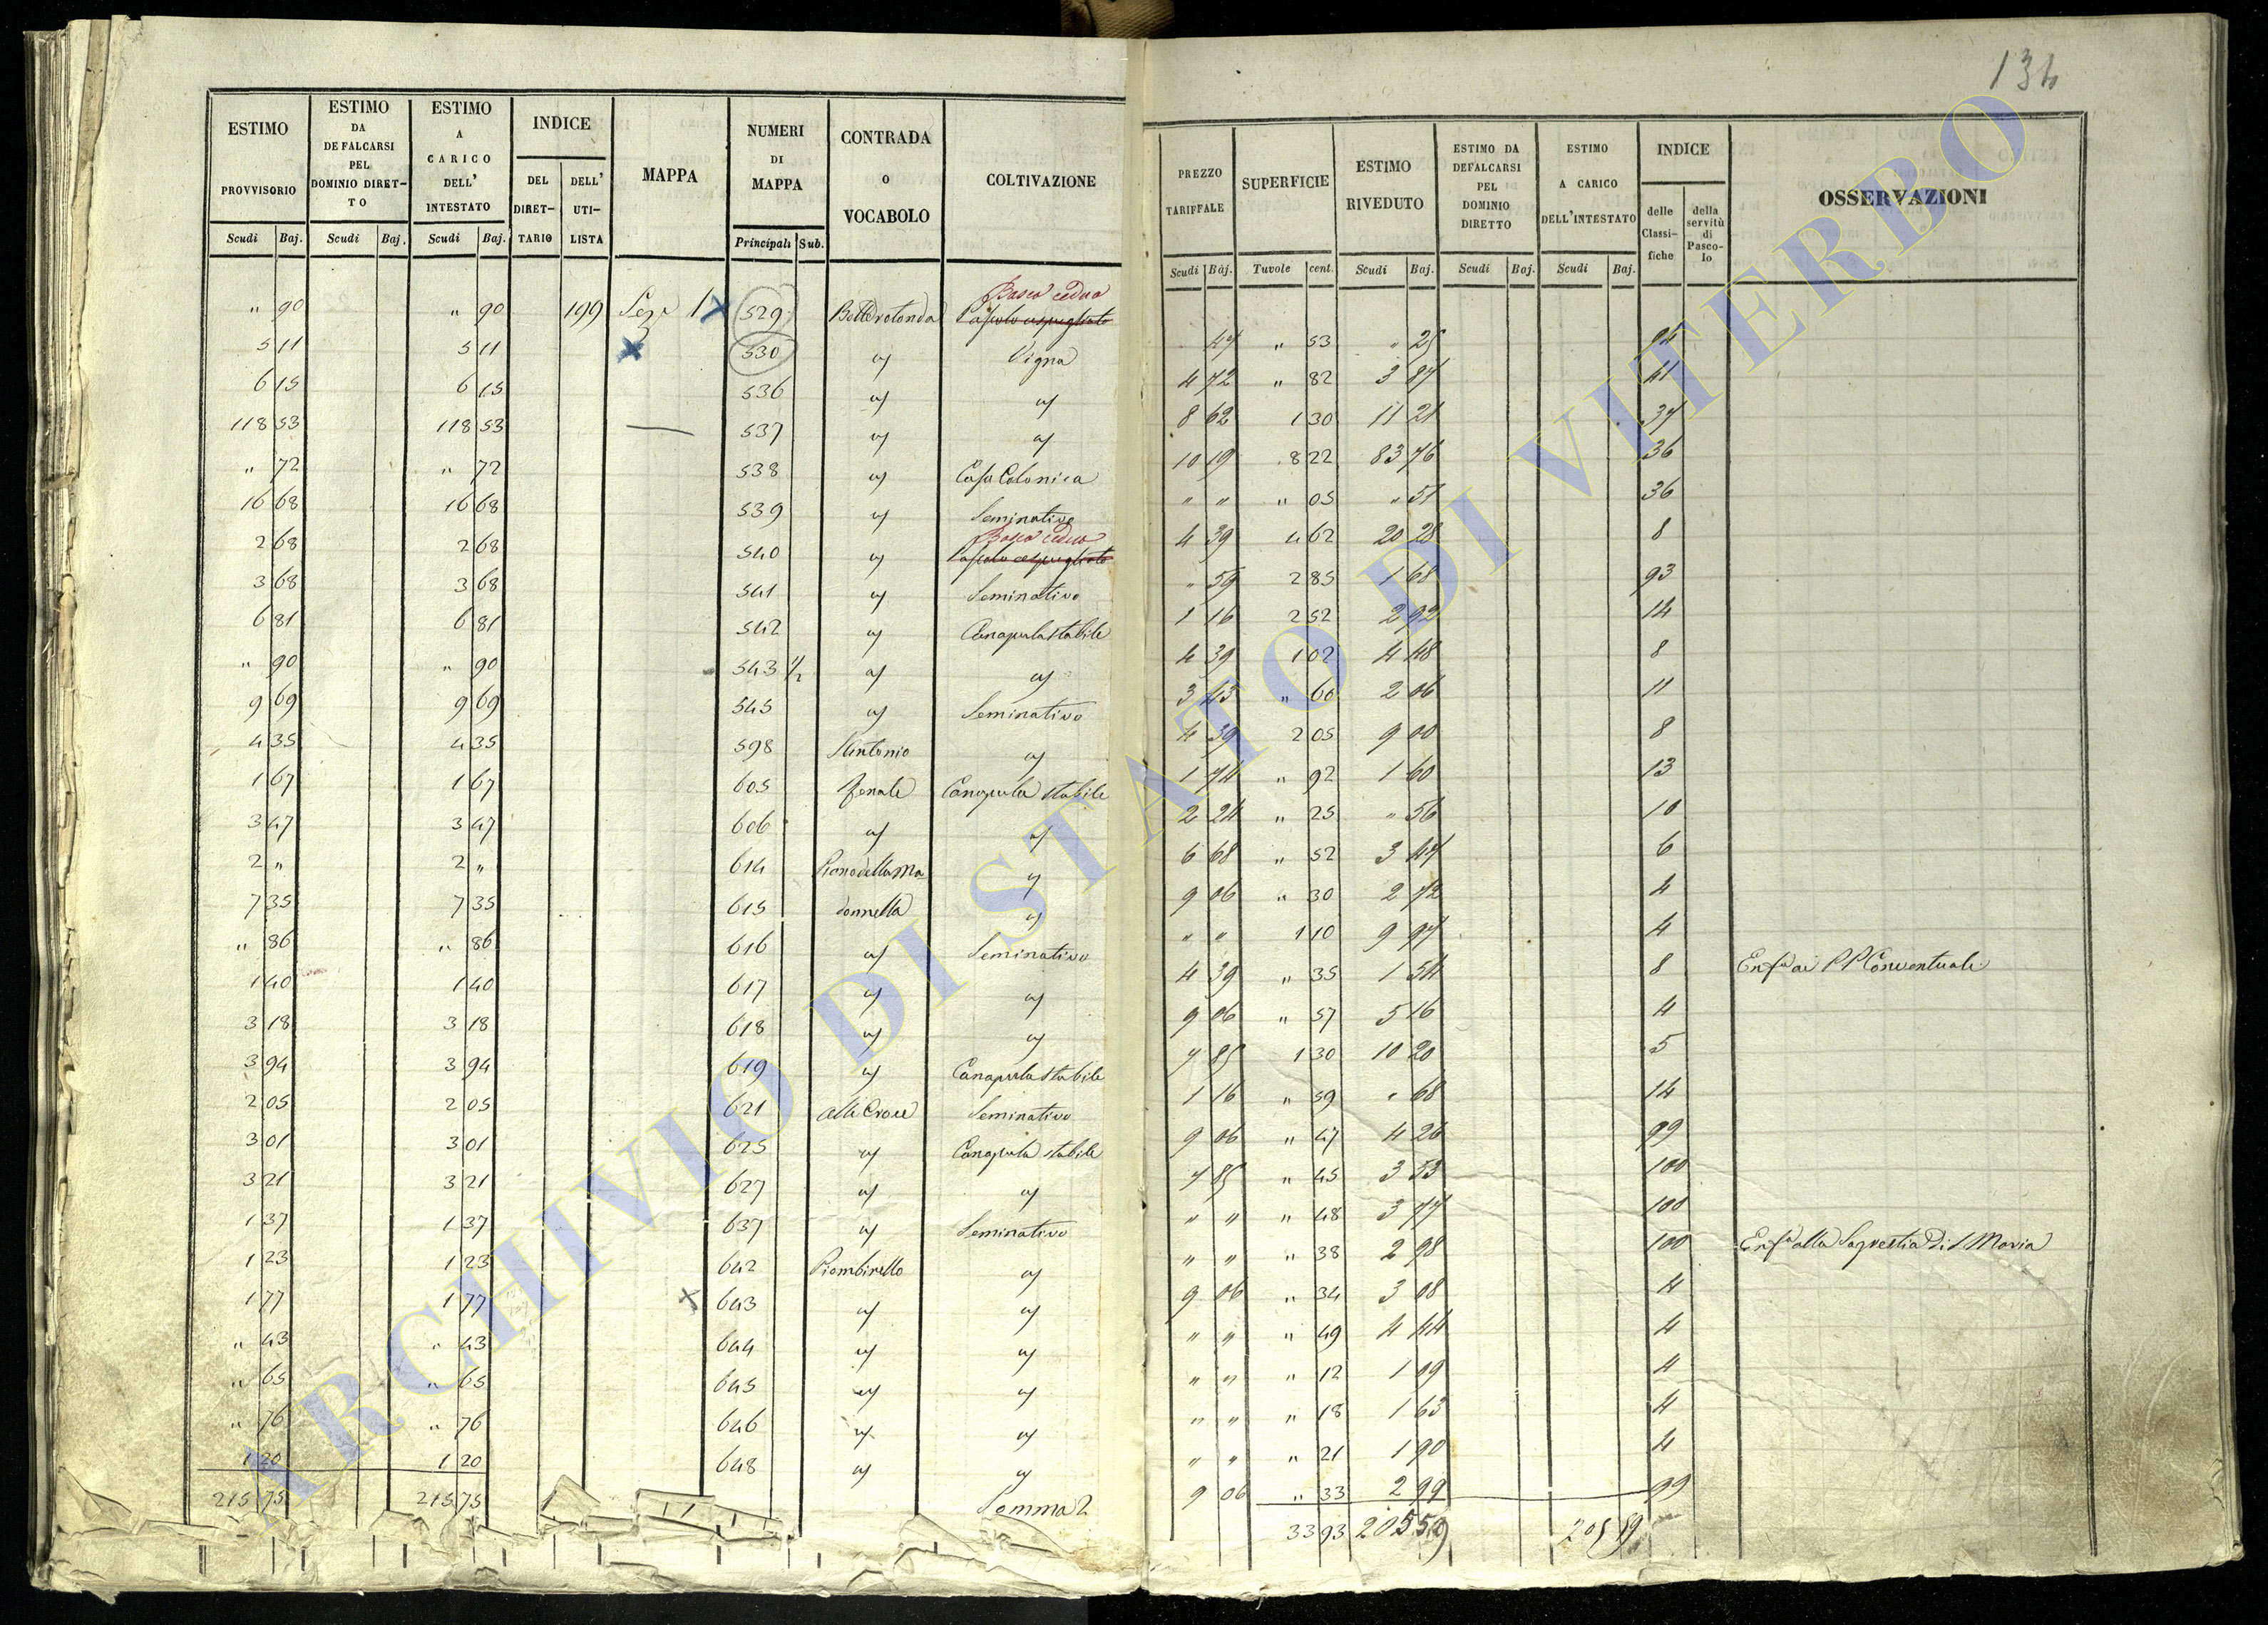 134
ESTIMO PROVVISORIO | ESTIMO DA DEFALCARSI PEL DOMINIO DIRETTO | ESTIMO A CARICO DELL' INTESTATO | INDICE | MAPPA | NUMERI DI MAPPA | CONTRADA O VOCABOLO | COLTIVAZIONE
DEL DIRET-TARIO | DELL' UTI-LISTA
Scudi | Baj. | Scudi | Baj. | Scudi | Baj. | Principali | Sub.
Bosco ceduo
" 90 | " 90 | 199 | Sez. 1 | 529 | Botte rotonda | Pascolo cespugliato
5 11 | 5 11 | 530 | " | Vigna
6 15 | 6 15 | 536 | " | "
118 53 | 118 53 | 537 | " | "
" 72 | " 72 | 538 | " | Casa Colonica
16 68 | 16 68 | 539 | " | Seminativo
Bosco ceduo
2 68 | 2 68 | 540 | " | Pascolo cespugliato
3 68 | 3 68 | 541 | " | Seminativo
6 81 | 6 81 | 542 | " | Canapula stabile
" 90 | " 90 | 543 1/2 | " | "
9 69 | 9 69 | 545 | " | Seminativo
4 35 | 4 35 | 598 | S Antonio | "
1 67 | 1 67 | 605 | Fenale | Canapula stabile
3 47 | 3 47 | 606 | " | "
2 " | 2 " | 614 | Piano della Ma | "
7 35 | 7 35 | 615 | donnella | "
" 86 | " 86 | 616 | " | Seminativo
1 40 | 1 40 | 617 | " | "
3 18 | 3 18 | 618 | " | "
3 94 | 3 94 | 619 | " | Canapula stabile
2 05 | 2 05 | 621 | alla Croce | Seminativo
3 01 | 3 01 | 625 | " | Canapula stabile
3 21 | 3 21 | 627 | " | "
1 37 | 1 37 | 637 | " | Seminativo
1 23 | 1 23 | 642 | Piombinello | "
1 77 | 1 77 | 643 | " | "
" 43 | " 43 | 644 | " | "
" 65 | " 65 | 645 | " | "
" 76 | " 76 | 646 | " | "
1 20 | 1 20 | 648 | " | "
215 75 | 215 75 | Somma
PREZZO TARIFFALE | SUPERFICIE | ESTIMO RIVEDUTO | ESTIMO DA DEFALCARSI PEL DOMINIO DIRETTO | ESTIMO A CARICO DELL'INTESTATO | INDICE | OSSERVAZIONI
delle Classi-fiche | della servitù di Pasco-lo
Scudi | Baj. | Tavole | cent. | Scudi | Baj. | Scudi | Baj. | Scudi | Baj.
47 | " 53 | " 25 | 94
4 72 | " 82 | 3 87 | 41
8 62 | 1 30 | 11 21 | 37
10 19 | 8 22 | 83 76 | 36
" " | " 05 | " 51 | 36
4 39 | 4 62 | 20 28 | 8
" 59 | 2 85 | 1 68 | 93
1 16 | 2 52 | 2 92 | 14
4 39 | 1 02 | 4 48 | 8
3 43 | " 60 | 2 06 | 11
4 39 | 2 05 | 9 00 | 8
1 74 | " 92 | 1 60 | 13
2 24 | " 25 | " 56 | 10
6 68 | " 52 | 3 47 | 6
9 06 | " 30 | 2 72 | 4
" " | 1 10 | 9 97 | 4
4 39 | " 35 | 1 54 | 8 | Enfa ai PP Conventuali
9 06 | " 57 | 5 16 | 4
7 85 | 1 30 | 10 20 | 5
1 16 | " 59 | " 68 | 14
9 06 | " 47 | 4 26 | 99
7 85 | " 45 | 3 53 | 100
" " | " 48 | 3 77 | 100
" " | " 38 | 2 98 | 100 | Enfa alla Sagrestia di S Maria
9 06 | " 34 | 3 08 | 4
" " | " 49 | 4 44 | 4
" " | " 12 | 1 09 | 4
" " | " 18 | 1 63 | 4
" " | " 21 | 1 90 | 4
9 06 | " 33 | 2 99 | 99
33 93 | 205 59 | 205 59
ARCHIVIO DI STATO DI VITERBO